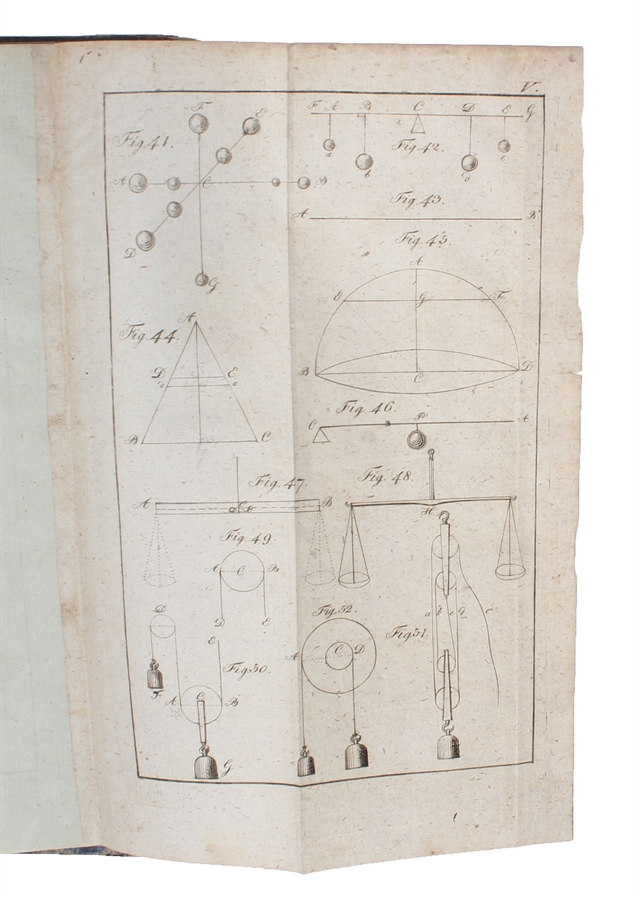 V.
Fig. 41.
F E
A C B
D
G
F A B C D E G
a b d e
Fig. 42.
Fig. 43.
A B
Fig. 45.
A
E G F
B C D
Fig. 44.
A
D E
B C
Fig. 46.
C A
Fig. 47.
A C B
Fig. 48.
H
Fig. 49.
A C B
D E
Fig. 50.
D
E
F
A C B
G
Fig. 52.
A C D
Fig. 51.
a b c d